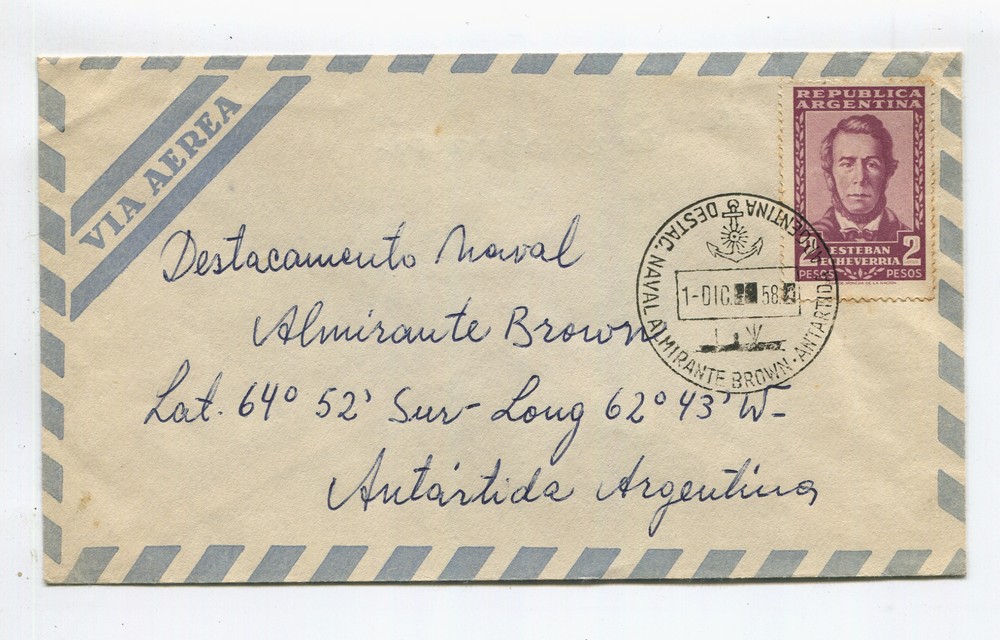 VIA AEREA
REPUBLICA
ARGENTINA
ESTEBAN
ECHEVERRIA
2 2
PESOS PESOS
DESTAC. NAVAL ALMIRANTE BROWN - ANTARTIDA ARGENTINA
1-DIC. 58
Destacamento Naval
Almirante Brown
Lat. 64° 52' Sur - Long 62° 43' W-
Antártida Argentina